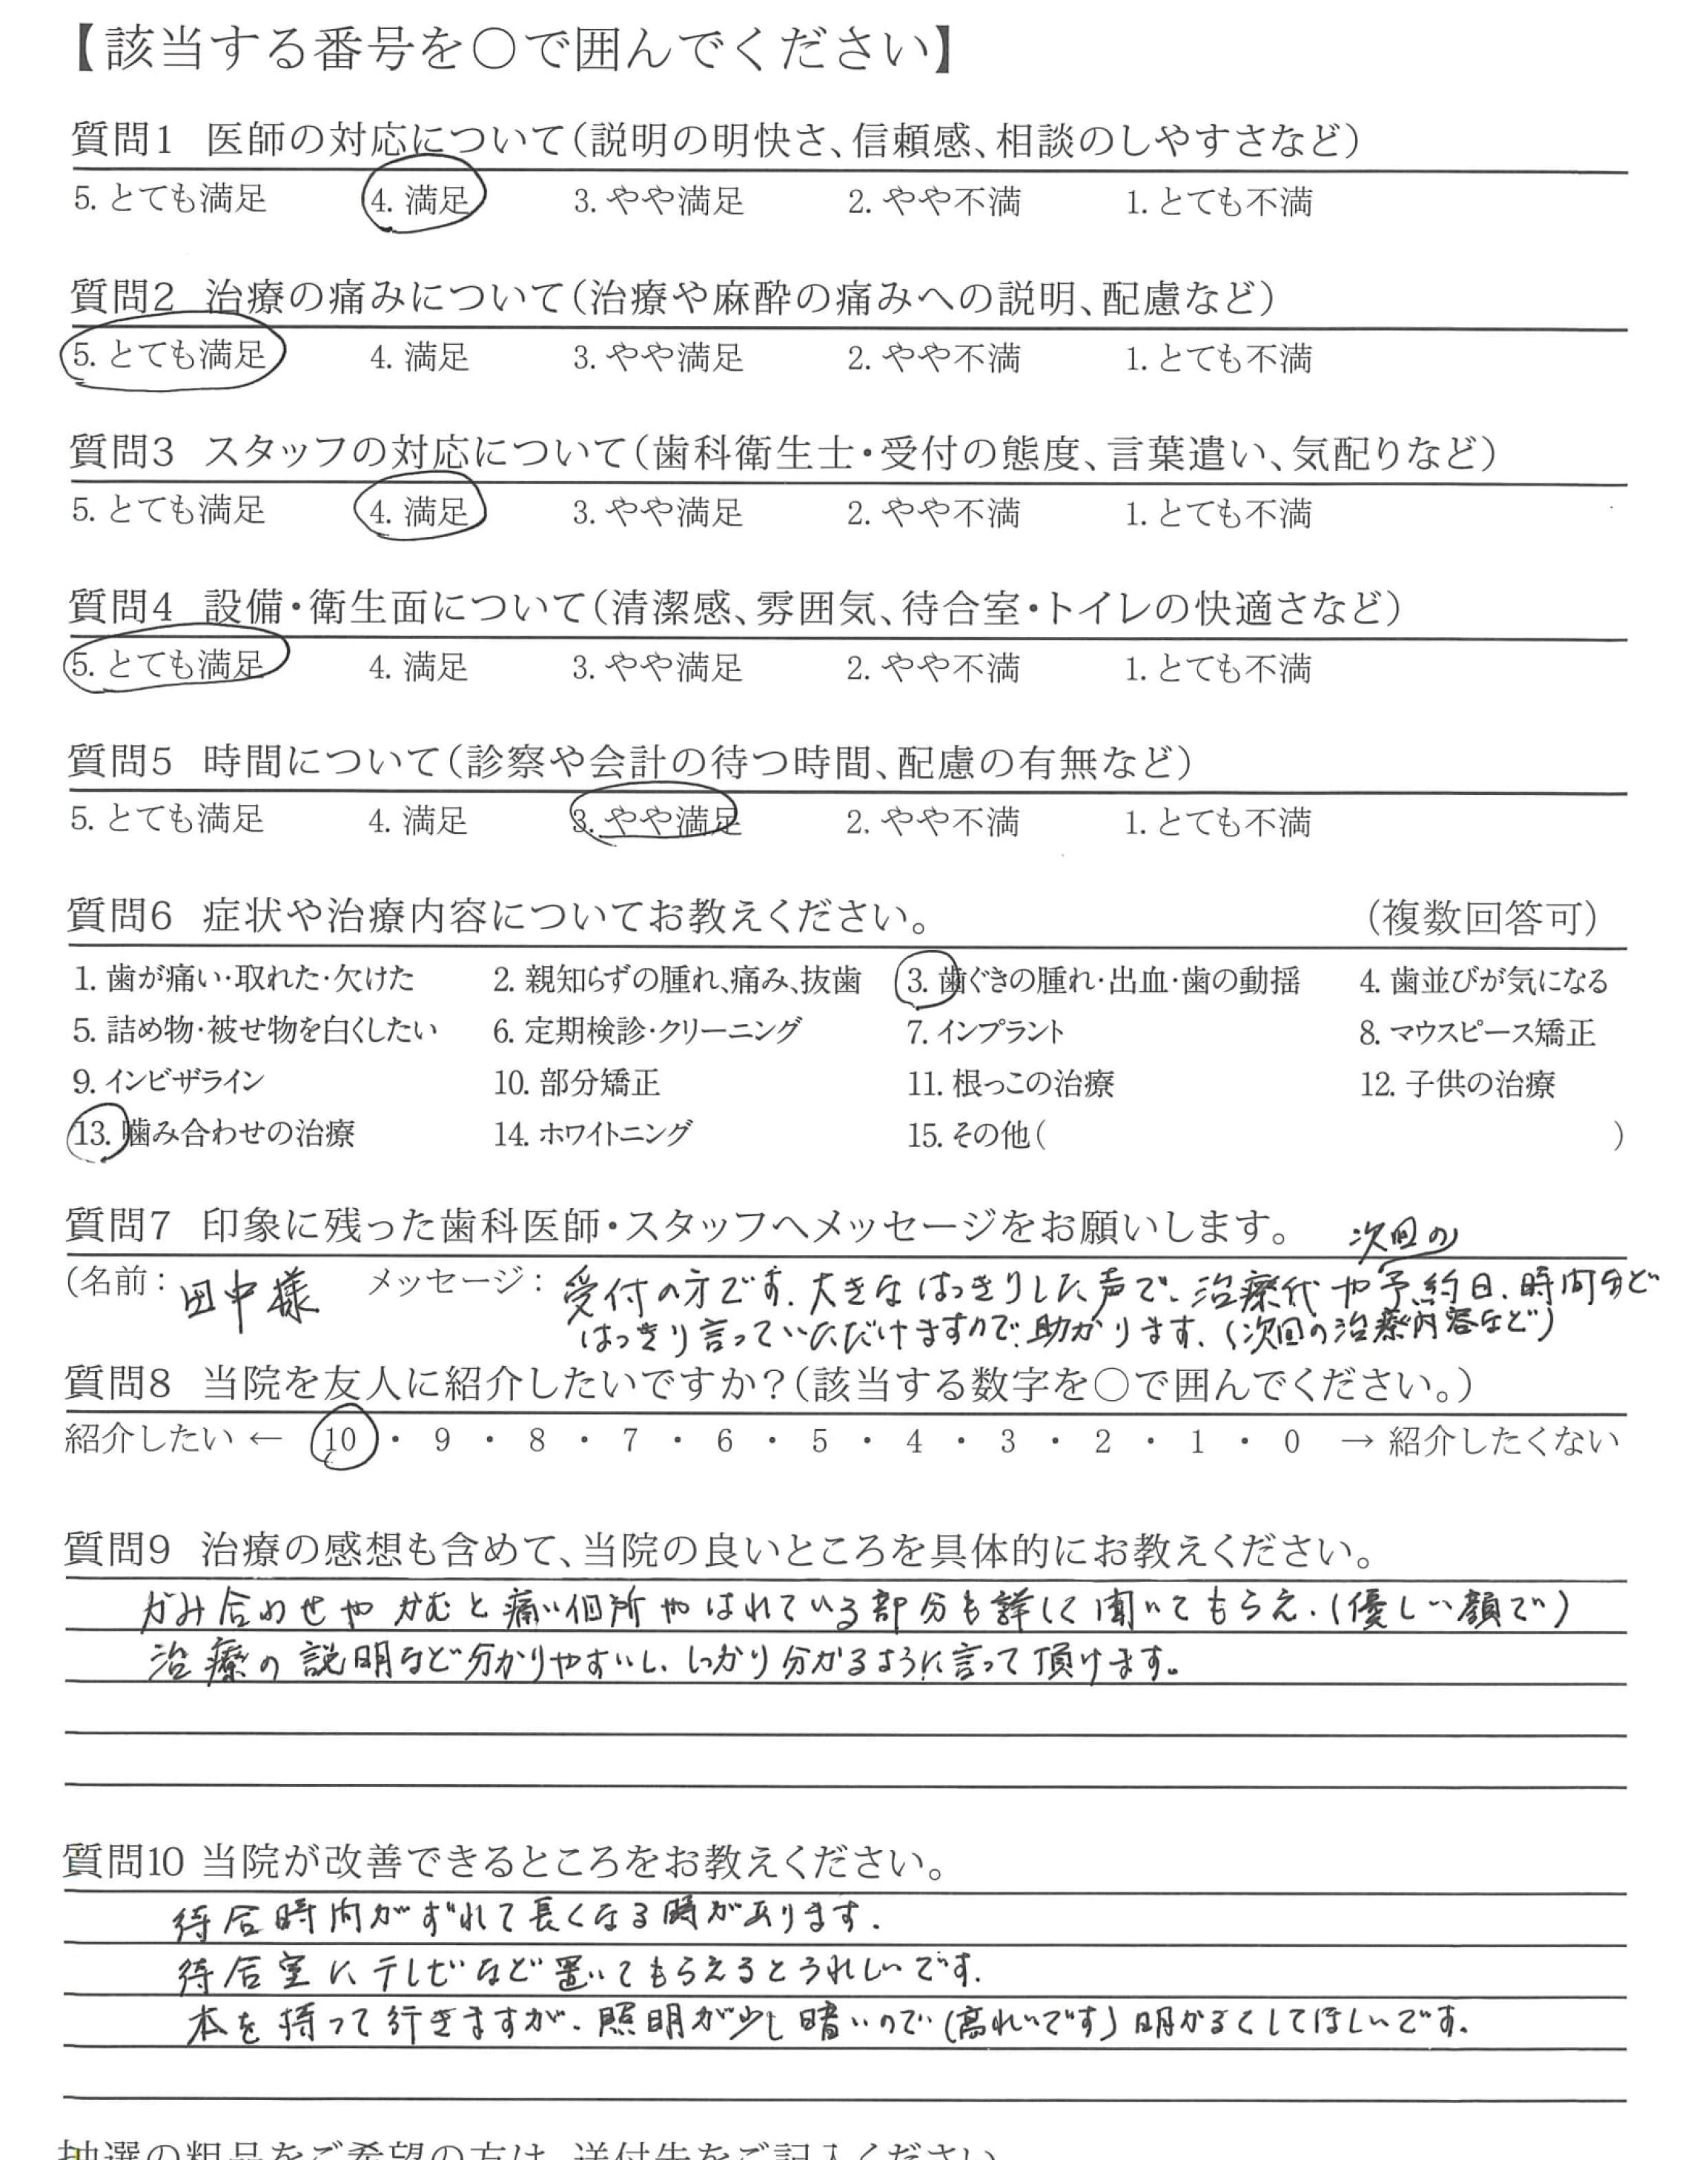 【該当する番号を○で囲んでください】
質問1 医師の対応について(説明の明快さ、信頼感、相談のしやすさなど)
5. とても満足 4. 満足 3. やや満足 2. やや不満 1. とても不満
質問2 治療の痛みについて(治療や麻酔の痛みへの説明、配慮など)
5. とても満足 4. 満足 3. やや満足 2. やや不満 1. とても不満
質問3 スタッフの対応について(歯科衛生士・受付の態度、言葉遣い、気配りなど)
5. とても満足 4. 満足 3. やや満足 2. やや不満 1. とても不満
質問4 設備・衛生面について(清潔感、雰囲気、待合室・トイレの快適さなど)
5. とても満足 4. 満足 3. やや満足 2. やや不満 1. とても不満
質問5 時間について(診察や会計の待つ時間、配慮の有無など)
5. とても満足 4. 満足 3. やや満足 2. やや不満 1. とても不満
質問6 症状や治療内容についてお教えください。 (複数回答可)
1. 歯が痛い・取れた・欠けた 2. 親知らずの腫れ、痛み、抜歯 3. 歯ぐきの腫れ・出血・歯の動揺 4. 歯並びが気になる
5. 詰め物・被せ物を白くしたい 6. 定期検診・クリーニング 7. インプラント 8. マウスピース矯正
9. インビザライン 10. 部分矯正 11. 根っこの治療 12. 子供の治療
13. 噛み合わせの治療 14. ホワイトニング 15. その他( )
質問7 印象に残った歯科医師・スタッフへメッセージをお願いします。
次回の
(名前: 田中様 メッセージ: 受付の方です。大きなはっきりした声で、治療代や予約日、時間など
はっきり言っていただけますので、助かります。(次回の治療内容など)
質問8 当院を友人に紹介したいですか?(該当する数字を○で囲んでください。)
紹介したい ← 10 ・ 9 ・ 8 ・ 7 ・ 6 ・ 5 ・ 4 ・ 3 ・ 2 ・ 1 ・ 0 → 紹介したくない
質問9 治療の感想も含めて、当院の良いところを具体的にお教えください。
かみ合わせや かむと痛い個所やはれている部分も詳しく聞いてもらえ、(優しい顔で)
治療の説明など分かりやすいし、しっかり分かるように言って頂けます。
質問10 当院が改善できるところをお教えください。
待合時間がずれて長くなる時があります。
待合室にテレビなど置いてもらえるとうれしいです。
本を持って行きますが、照明が少し暗いので 明かるくしてほしいです。
抽選の粗品をご希望の方は、送付先をご記入ください